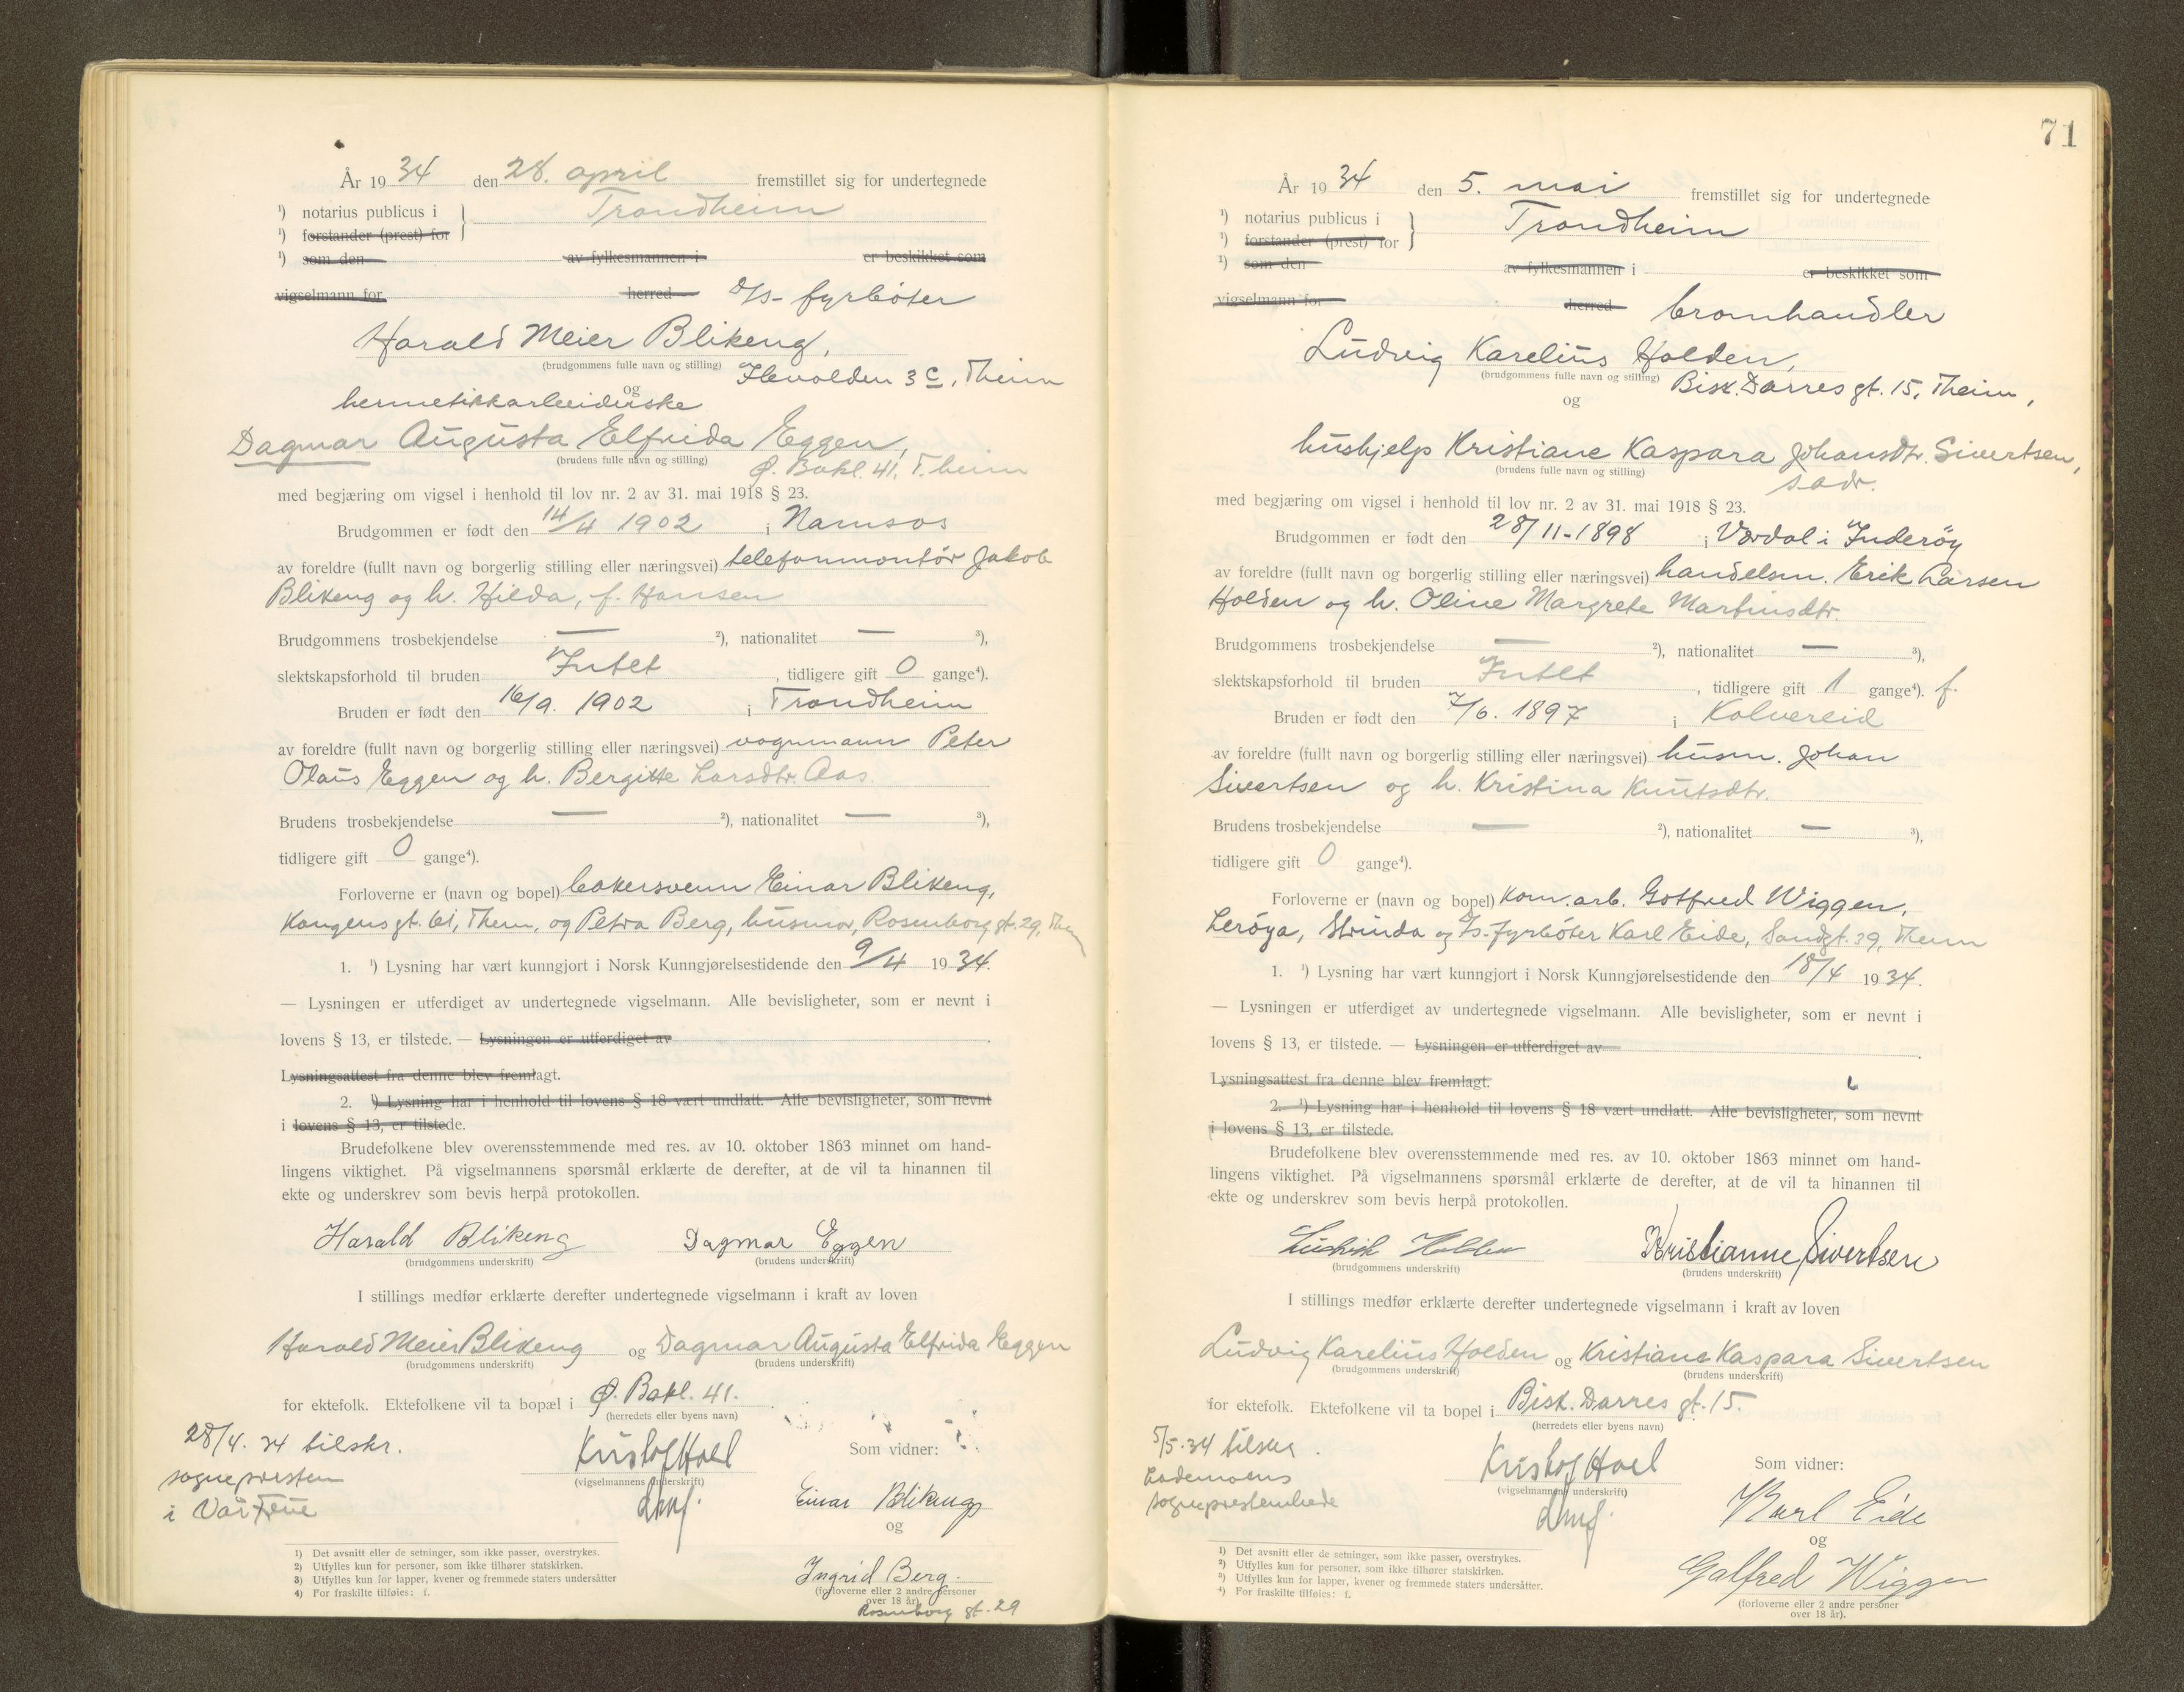 År 1934 den 28. april fremstillet sig for undertegnede
¹) notarius publicus i } Trondheim
¹) forstander (prest) for
¹) som den av fylkesmannen i er beskikket som
vigselmann for herred D/S- fyrbøter
Harald Meier Blikeng,
(brudgommens fulle navn og stilling) Ilevolden 3c, Theim
og
hermetikkarbeiderske
Dagmar Augusta Elfrida Eggen,
(brudens fulle navn og stilling) Ø. Bakl. 41, T.heim
med begjæring om vigsel i henhold til lov nr. 2 av 31. mai 1918 § 23.
Brudgommen er født den 14/4 1902 i Namsos
av foreldre (fullt navn og borgerlig stilling eller næringsvei) telefonmontør Jakob
Blikeng og h. Hilda, f. Hansen
Brudgommens trosbekjendelse — ²), nationalitet — ³),
slektskapsforhold til bruden Intet, tidligere gift 0 gange⁴).
Bruden er født den 16/9. 1902 i Trondheim
av foreldre (fullt navn og borgerlig stilling eller næringsvei) vognmann Peter
Olaus Eggen og h. Bergitte Larsdtr. Aas.
Brudens trosbekjendelse — ²), nationalitet — ³),
tidligere gift 0 gange⁴).
Forloverne er (navn og bopel) bakersvenn Einar Blikeng,
Kongens gt. 61, Them, og Petra Berg, husmor, Rosenborg gt. 29, Them
1. ¹) Lysning har vært kunngjort i Norsk Kunngjørelsestidende den 9/4 1934.
— Lysningen er utferdiget av undertegnede vigselmann. Alle bevisligheter, som er nevnt i
lovens § 13, er tilstede. — Lysningen er utferdiget av .
Lysningsattest fra denne blev fremlagt.
2. ¹) Lysning har i henhold til lovens § 18 vært undlatt. Alle bevisligheter, som nevnt
i lovens § 13, er tilstede.
Brudefolkene blev overensstemmende med res. av 10. oktober 1863 minnet om hand-
lingens viktighet. På vigselmannens spørsmål erklærte de derefter, at de vil ta hinannen til
ekte og underskrev som bevis herpå protokollen.
Harald Blikeng Dagmar Eggen
(brudgommens underskrift) (brudens underskrift)
I stillings medfør erklærte derefter undertegnede vigselmann i kraft av loven
Harald Meier Blikeng og Dagmar Augusta Elfrida Eggen
(brudgommens underskrift) (brudens underskrift)
for ektefolk. Ektefolkene vil ta bopæl i Ø. Bakl. 41.
(herredets eller byens navn)
28/4. 34 tilskr.
sognepresten
i Vår Frue
Kristof Hoel
(vigselmannens underskrift)
Som vidner:
Einar Blikeng
og
Ingrid Berg.
(forloverne eller 2 andre personer
over 18 år).
Rosenborg gt. 29
1) Det avsnitt eller de setninger, som ikke passer, overstrykes.
2) Utfylles kun for personer, som ikke tilhører statskirken.
3) Utfylles kun for lapper, kvener og fremmede staters undersåtter
4) For fraskilte tilføies: f.
71
År 1934 den 5. mai fremstillet sig for undertegnede
¹) notarius publicus i } Trondheim
¹) forstander (prest) for
¹) som den av fylkesmannen i er beskikket som
vigselmann for herred
Ludvig Karelius Holden,
(brudgommens fulle navn og stilling) Bisk. Darres gt. 15, Theim,
og
hushjelp Kristiane Kaspara Johansdtr. Sivertsen,
(brudens fulle navn og stilling) s. adr.
med begjæring om vigsel i henhold til lov nr. 2 av 31. mai 1918 § 23.
Brudgommen er født den 28/11-1898 i Verdal i Inderøy
av foreldre (fullt navn og borgerlig stilling eller næringsvei) handelsm. Erik Larsen
Holden og h. Oline Margrete Martinsdtr.
Brudgommens trosbekjendelse — ²), nationalitet — ³),
slektskapsforhold til bruden Intet, tidligere gift 1 gange⁴). f.
Bruden er født den 7/6. 1897 i Kolvereid
av foreldre (fullt navn og borgerlig stilling eller næringsvei) husm. Johan
Sivertsen og h. Kristina Knutsdtr.
Brudens trosbekjendelse — ²), nationalitet — ³),
tidligere gift 0 gange⁴).
Forloverne er (navn og bopel) kom. arb. Gotfred Wiggen,
Lerøya, Strinda og D/s. fyrbøter Karl Eide, Sandgt. 29, Them
1. ¹) Lysning har vært kunngjort i Norsk Kunngjørelsestidende den 18/4 1934.
— Lysningen er utferdiget av undertegnede vigselmann. Alle bevisligheter, som er nevnt i
lovens § 13, er tilstede. — Lysningen er utferdiget av .
Lysningsattest fra denne blev fremlagt.
2. ¹) Lysning har i henhold til lovens § 18 vært undlatt. Alle bevisligheter, som nevnt
i lovens § 13, er tilstede.
Brudefolkene blev overensstemmende med res. av 10. oktober 1863 minnet om hand-
lingens viktighet. På vigselmannens spørsmål erklærte de derefter, at de vil ta hinannen til
ekte og underskrev som bevis herpå protokollen.
Ludvik Holden Kristianne Sivertsen
(brudgommens underskrift) (brudens underskrift)
I stillings medfør erklærte derefter undertegnede vigselmann i kraft av loven
Ludvig Karelius Holden og Kristiane Kaspara Sivertsen
(brudgommens underskrift) (brudens underskrift)
for ektefolk. Ektefolkene vil ta bopel i Bisk. Darres gt. 15.
(herredets eller byens navn)
5/5. 34 tilskr.
Lademoens
sogneprestembede
Kristof Hoel
(vigselmannens underskrift)
Som vidner:
Karl Eide
og
Galfred Wiggen
(forloverne eller 2 andre personer
over 18 år).
¹) Det avsnitt eller de setninger, som ikke passer, overstrykes.
²) Utfylles kun for personer, som ikke tilhører statskirken.
³) Utfylles kun for lapper, kvener og fremmede staters undersåtter.
⁴) For fraskilte tilføies: f.